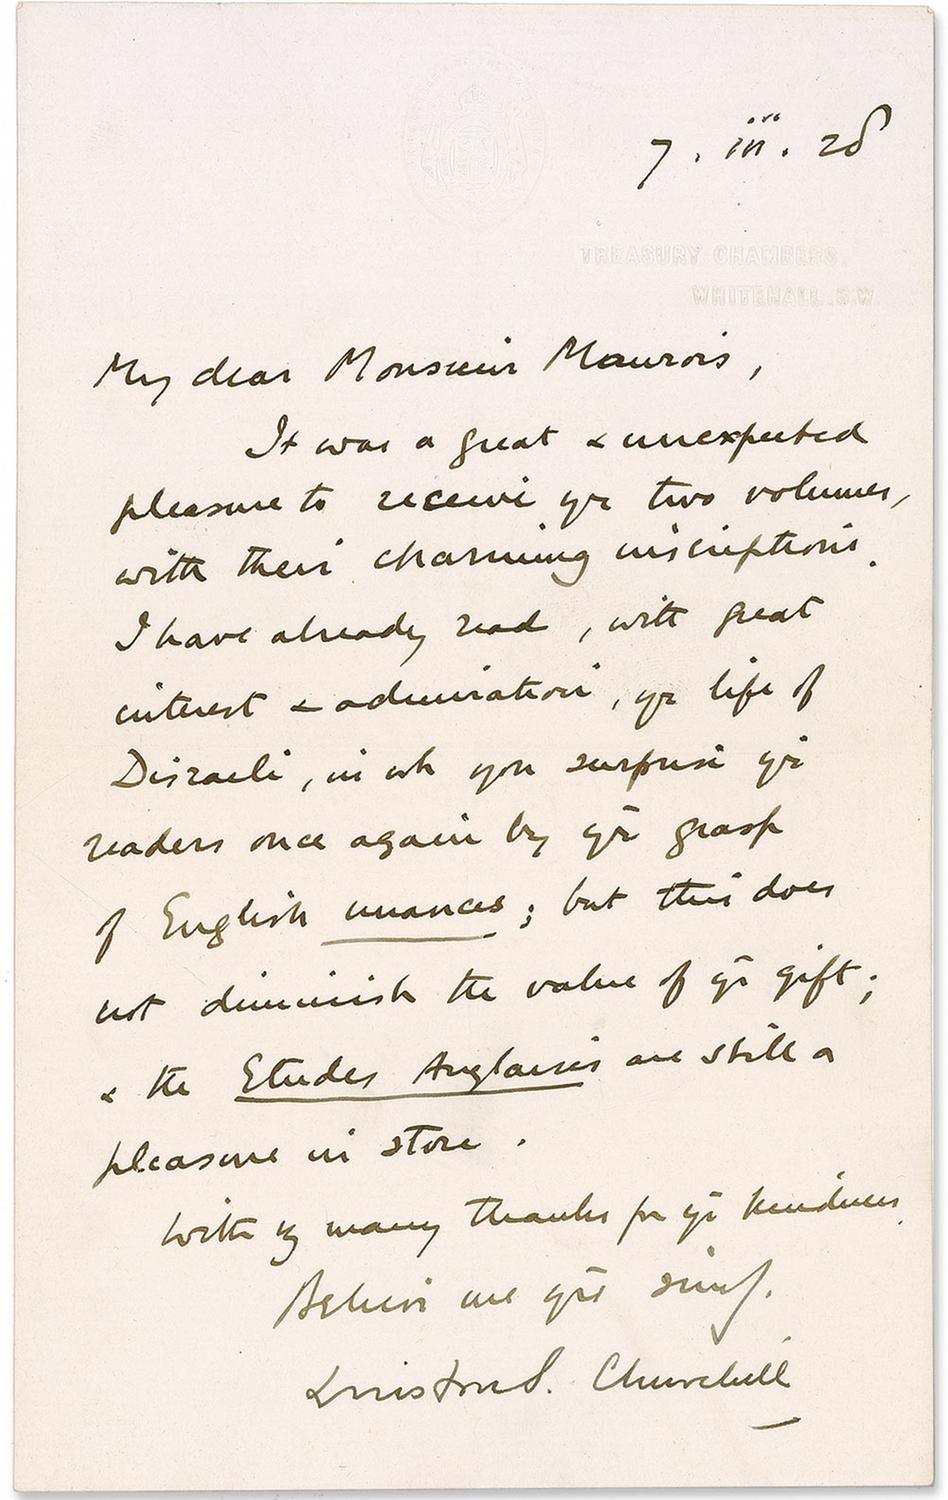 7. iii. 28
TREASURY CHAMBERS,
WHITEHALL. S.W.
My dear Monsieur Maurois,
It was a great & unexpected
pleasure to receive yr two volumes,
with their charming inscriptions.
I have already read, with great
interest & admiration, yr life of
Disraeli, in wh you surprise yr
readers once again by yr grasp
of English nuances; but this does
not diminish the value of yr gift;
& the Etudes Anglaises are still a
pleasure in store.
With many thanks for yr kindness,
Believe me yrs
Winston S. Churchill